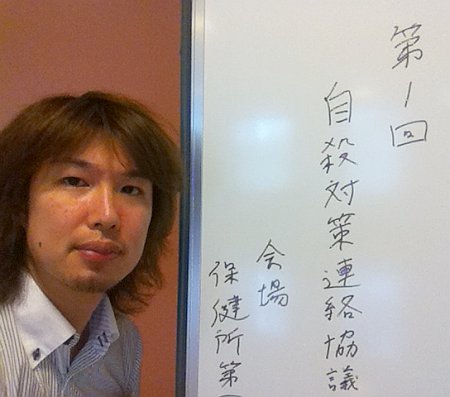 第1回
自殺対策連絡協議
会場
保健所第